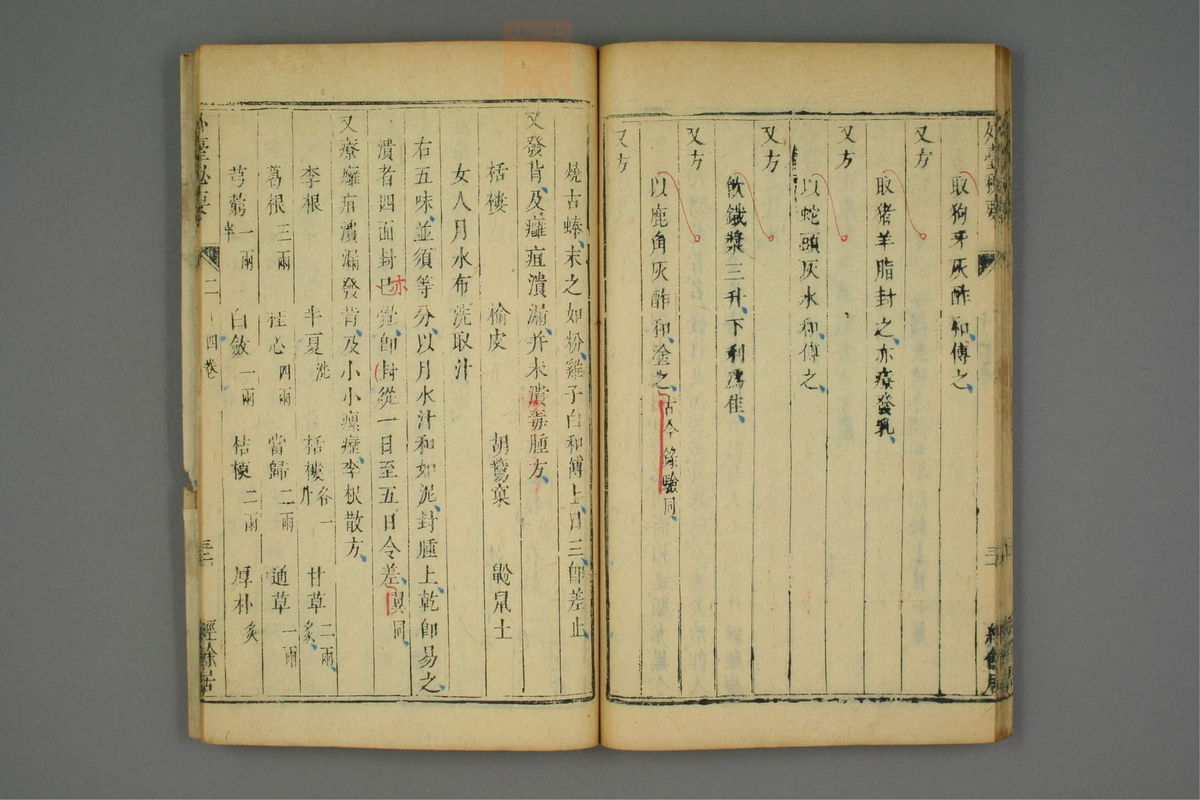 外臺秘要
取狗牙灰醋和傅之
又方
取猪羊脂封之亦療發乳
又方
以蛇頭灰水和傅之
又方
飲鐵漿三升下利爲佳
又方
以鹿角灰酢和塗之古今錄驗同
又方
燒古蜯末之如粉雞子白和傅上日三即差止
又發背及癰疽潰漏并未潰毒腫方
栝樓 榆皮 胡鷰窠 鼢鼠土
女人月水布洗取汁
右五味並須等分以月水汁和如泥封腫上乾即易之
潰者四面封已亦覺即封從一日至五日令差翼同
又療癰疽潰漏發背及小小瘰癧李根散方
李根 半夏洗 栝樓各一斤 甘草二兩炙
葛根三兩 桂心四兩 當歸二兩 通草一兩
芎藭一兩半 白斂一兩 桔梗二兩 厚朴炙
外臺秘要 二四卷 三二 經餘居